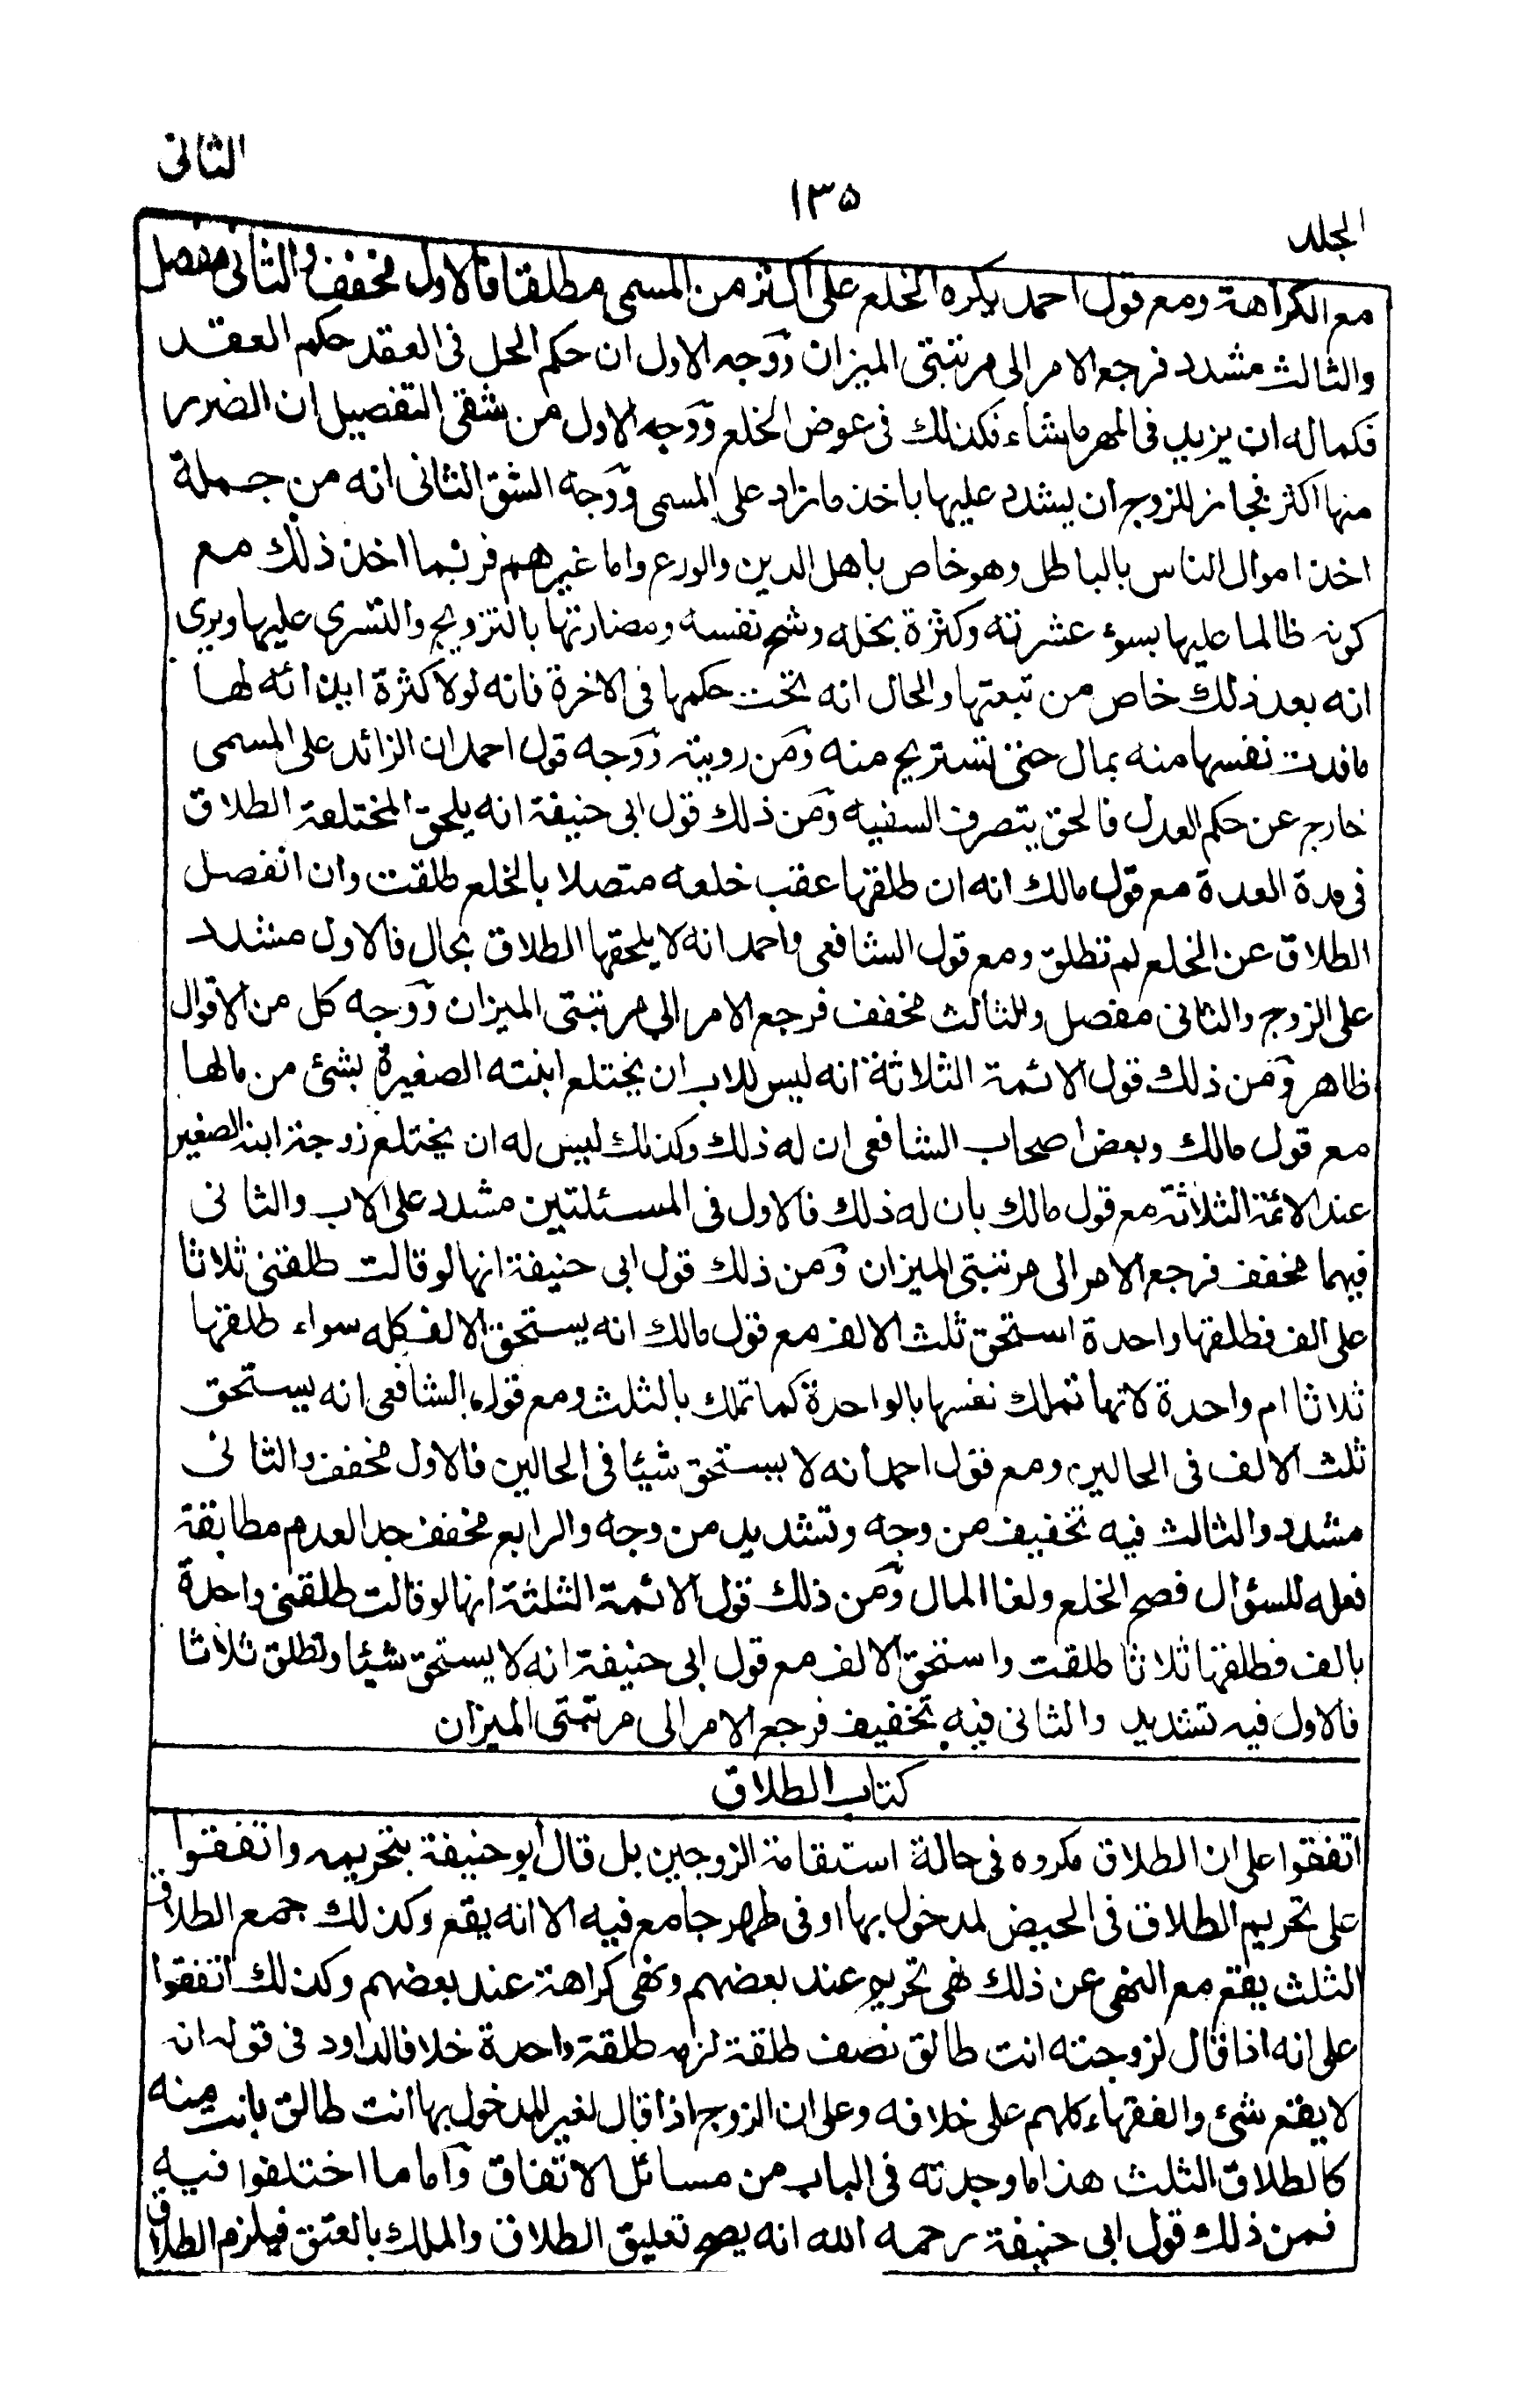 الثانى
١٣٥
الجلد
مع الكراهة ومع قول احمد يكره الخلع على اكثر من المسمى مطلقا فالاول مخفف والثانى مفصل
والثالث مشدد فرجع الامر الى مرتبتى الميزان ووجه الاول ان حكم الحل فى العقد حكم العقد
فكما له ان يزيد فى المهر ما شاء فكذلك فى عوض الخلع ووجه الاول من شقى التفصيل ان الضرر
منها اكثر فجاز للزوج ان يشدد عليها باخذ ما زاد على المسمى ووجه الشق الثانى انه من جملة
اخذ اموال الناس بالباطل وهو خاص باهل الدين والورع واما غيرهم فربما اخذ ذلك مع
كونه ظالما عليها بسوء عشرته وكثرة بخله وشح نفسه ومضارتها بالتزويج والتسرى عليها ويرى
انه بعد ذلك خاص من تبعتها والحال انه تحت حكمها فى الاخرة فانه لولا كثرة ايذائه لها
ما فدت نفسها منه بمال حتى تستريح منه ومن رويته ووجه قول احمد ان الزائد على المسمى
خارج عن حكم العدل فالحق بتصرف السفيه ومن ذلك قول ابى حنيفة انه يلحق المختلعة الطلاق
فى مدة العدة مع قول مالك انه ان طلقها عقب خلعه متصلا بالخلع طلقت وان انفصل
الطلاق عن الخلع لم تطلق ومع قول الشافعى واحمد انه لا يلحقها الطلاق بحال فالاول مشدد
على الزوج والثانى مفصل والثالث مخفف فرجع الامر الى مرتبتى الميزان ووجه كل من الاقوال
ظاهر ومن ذلك قول الائمة الثلاثة انه ليس للاب ان يختلع ابنته الصغيرة بشئ من مالها
مع قول مالك وبعض اصحاب الشافعى ان له ذلك وكذلك ليس له ان يختلع زوجة ابنه الصغير
عند الائمة الثلاثة مع قول مالك بان له ذلك فالاول فى المسئلتين مشدد على الاب والثانى
فيهما مخفف فرجع الامر الى مرتبتى الميزان ومن ذلك قول ابى حنيفة انها لو قالت طلقنى ثلاثا
على الف فطلقها واحدة استحق ثلث الالف مع قول مالك انه يستحق الالف كله سواء طلقها
ثلاثا ام واحدة لانها تملك نفسها بالواحدة كما تملك بالثلث ومع قول الشافعى انه يستحق
ثلث الالف فى الحالين ومع قول احمد انه لا يستحق شيئا فى الحالين فالاول مخفف والثانى
مشدد والثالث فيه تخفيف من وجه وتشديد من وجه والرابع مخفف جدا لعدم مطابقة
فعله للسؤال فصح الخلع ولغا المال ومن ذلك قول الائمة الثلثة انها لو قالت طلقنى واحدة
بالف فطلقها ثلاثا طلقت واستحق الالف مع قول ابى حنيفة انه لا يستحق شيئا وتطلق ثلاثا
فالاول فيه تشديد والثانى فيه تخفيف فرجع الامر الى مرتبتى الميزان
كتاب الطلاق
اتفقوا على ان الطلاق مكروه فى حالة استقامة الزوجين بل قال ابو حنيفة بتحريمه واتفقوا
على تحريم الطلاق فى الحيض لمدخول بها او فى طهر جامع فيه الا انه يقع وكذلك جمع الطلاق
الثلث يقع مع النهى عن ذلك نهى تحريم عند بعضهم ونهى كراهة عند بعضهم وكذلك اتفقوا
على انه اذا قال لزوجته انت طالق نصف طلقة لزمه طلقة واحدة خلافا لداود فى قوله انه
لا يقع شئ والفقهاء كلهم على خلافه وعلى ان الزوج اذا قال لغير المدخول بها انت طالق بانت منه
كالطلاق الثلث هذا ما وجدته فى الباب من مسائل الاتفاق واما ما اختلفوا فيه
فمن ذلك قول ابى حنيفة رحمه الله انه يصح تعليق الطلاق والملك بالعتق فيلزم الطلاق